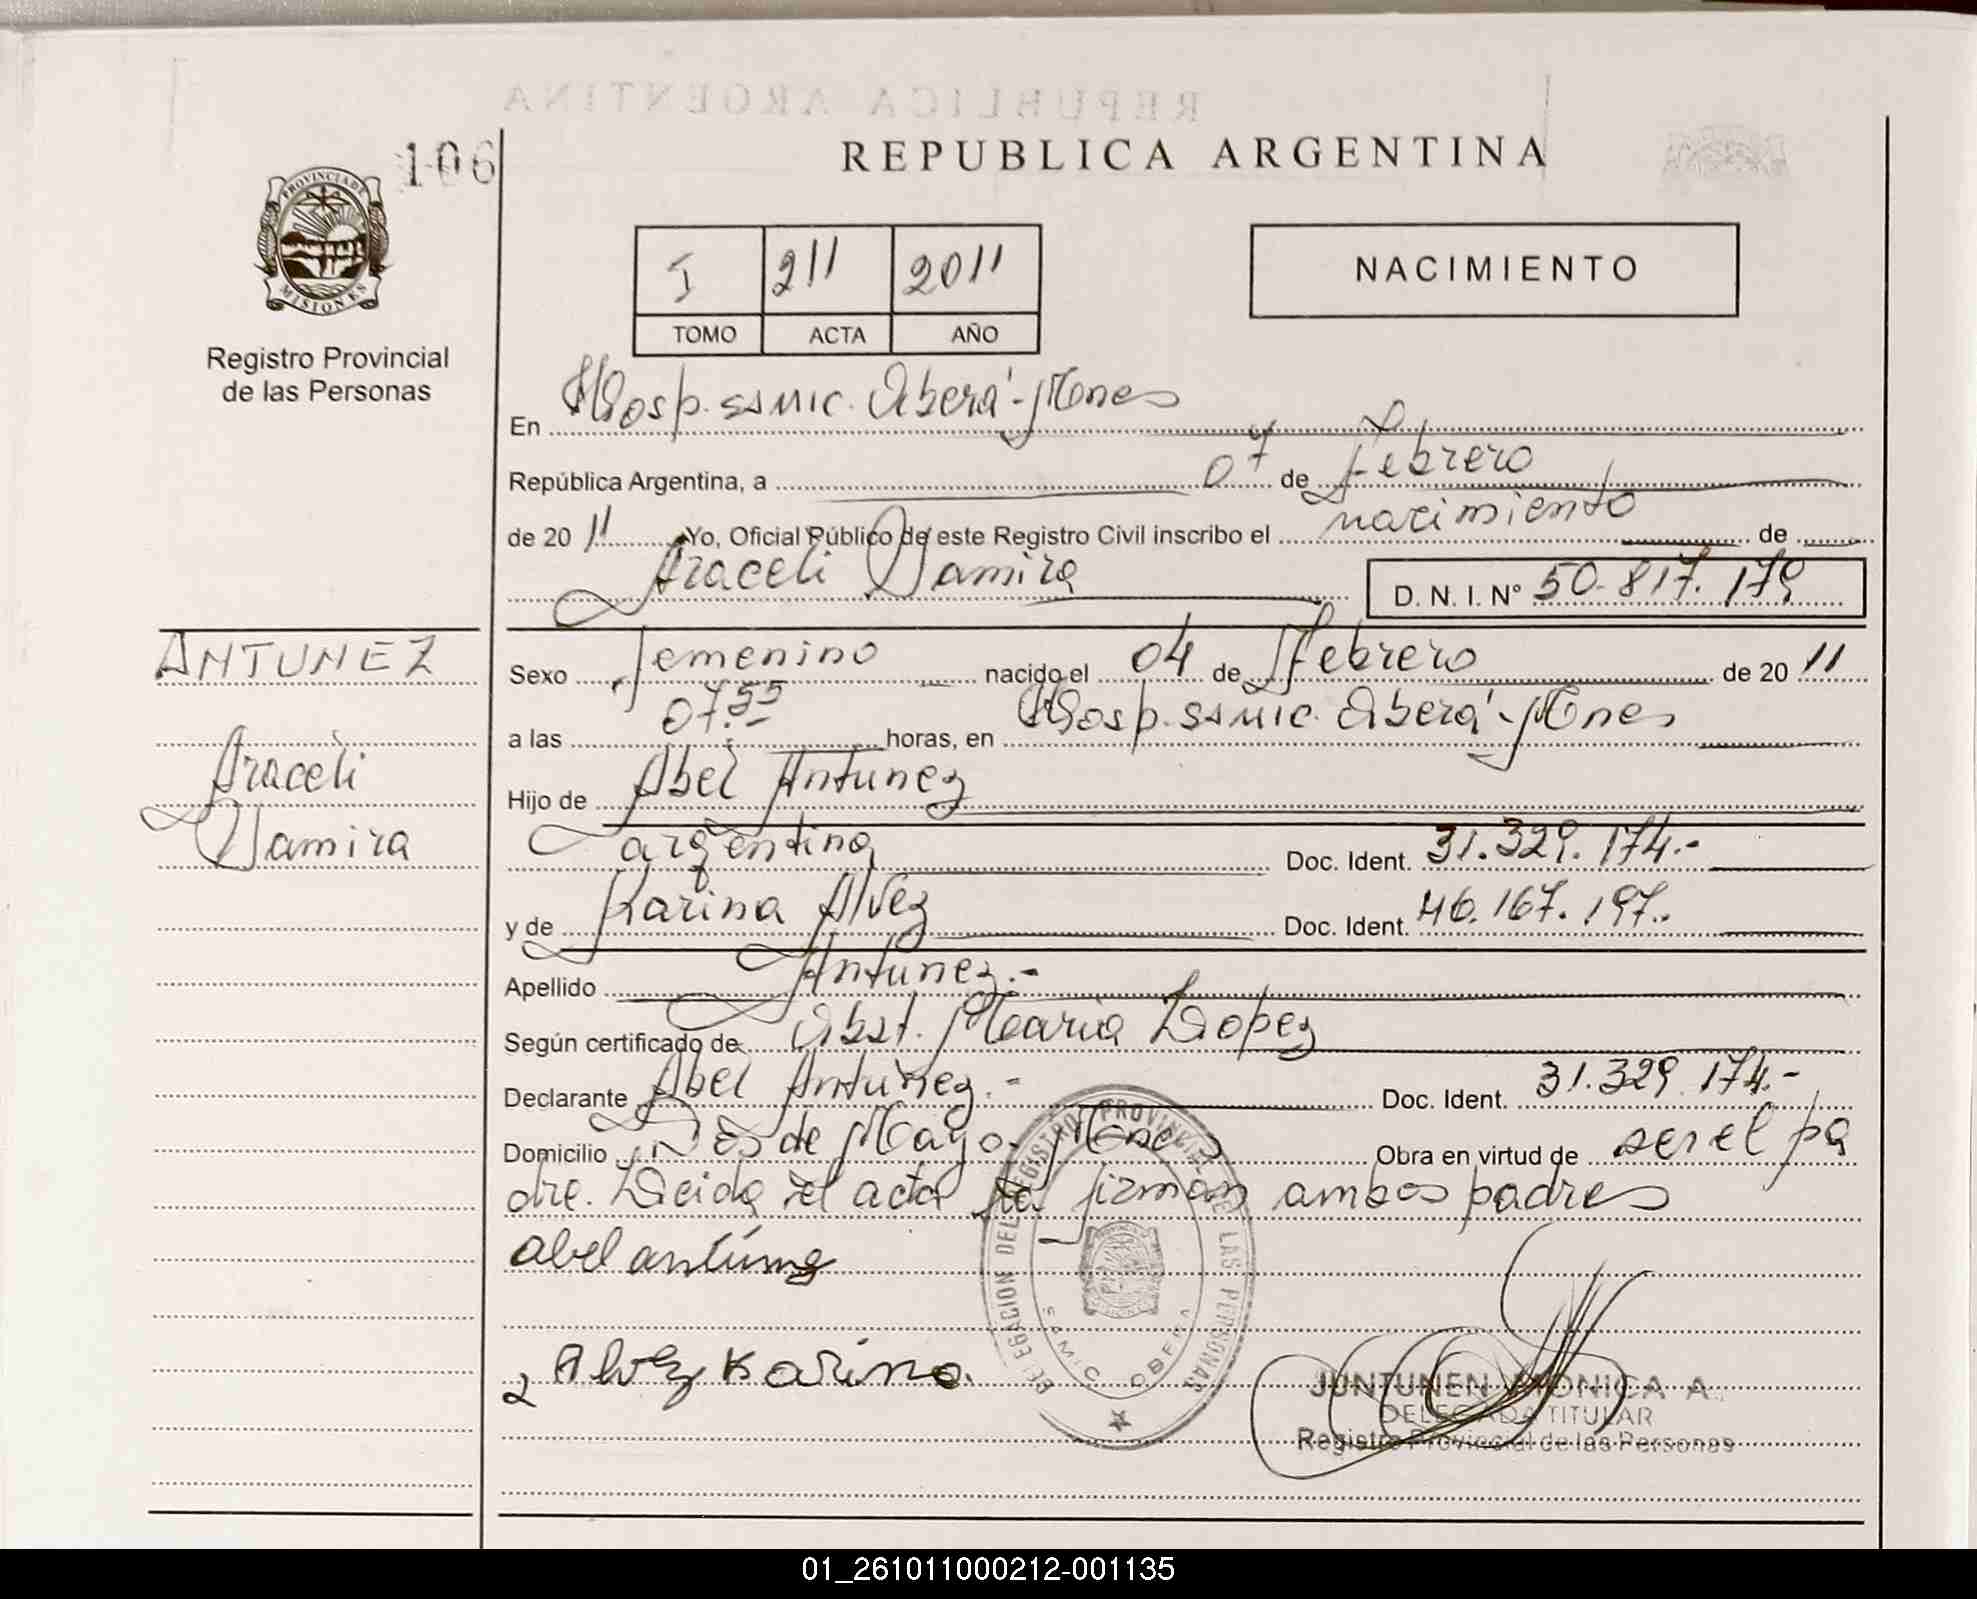 106
REPUBLICA ARGENTINA
PROVINCIA DE MISIONES
Registro Provincial
de las Personas
I 211 2011
TOMO ACTA AÑO
NACIMIENTO
En Hosp. SAMIC. Oberá - Mnes
República Argentina, a 07 de Febrero
de 2011 Yo, Oficial Público de este Registro Civil inscribo el nacimiento de
Araceli Yamira D. N. I. Nº 50.817.179
ANTUNEZ
Araceli
Yamira
Sexo femenino nacido el 04 de Febrero de 2011
a las 07.55 horas, en Hosp. SAMIC. Oberá - Mnes
Hijo de Abel Antunez
argentino Doc. Ident. 31.329.174.-
y de Karina Alvez Doc. Ident. 46.167.197.
Apellido Antunez.-
Según certificado de Obst. Maria Lopez
Declarante Abel Antunez.- Doc. Ident. 31.329.174.-
Domicilio de Mayo. Mnes Obra en virtud de ser el pa
dre. Leida el acta la firman ambos padres
Abel antúnez
Alvez Karina.
DELEGACION DEL REGISTRO PROVINCIAL DE LAS PERSONAS
SAMIC OBERA
JUNTUNEN MONICA A.
DELEGADA TITULAR
Registro Provincial de las Personas
01_261011000212-001135